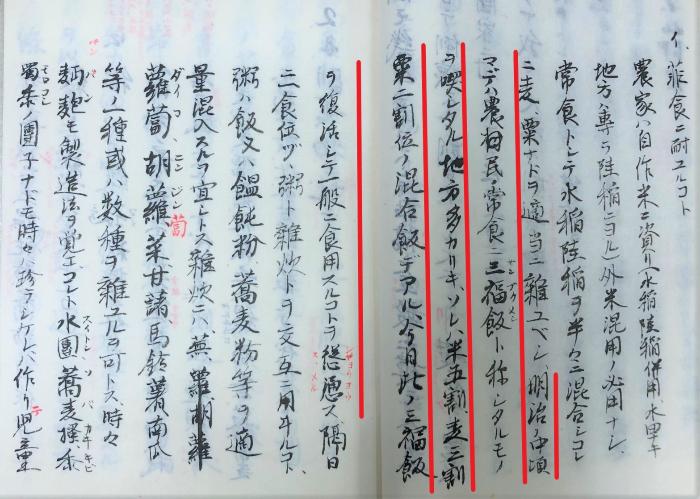 イ、菲食ニ耐ユルコト
農家ハ自作米ニ資リ(水稲陸稲併用、水田ナキ
地方ハ専ラ陸稲ニヨル)外米混用ノ必用ナシ、
常食トシテ水稲陸稲ヲ半々ニ混合シコレ
ニ麦、粟ナドヲ適当ニ雑ユベシ、明治ノ中頃
マデハ農村民ノ常食ニ三福飯ト称シタルモノ
サンプクメシ
ヲ喫シタル地方多カリキ、ソレハ米五割、麦三割
粟二割位ノ混合飯デアル、今日此ノ三福飯
ヲ復活シテ一般ニ食用スルコトヲ慫慂ス 隔日
ショウヨウ
スヽメル
二食位ヅヽ粥ト雑炊トヲ交互ニ用ヰルコト、
粥ハ飯又ハ饂飩粉、蕎麦粉等ヲ適
量混入スルヲ宜シトス 雑炊ニハ、蕪 蘿蔔 胡蘿
蘿蔔 胡蘿、菜 甘諸 馬鈴薯 南瓜
ダイコ
ニンジン
蔔
等ノ一種或ハ数種ヲ雑ユルヲ可トス、時々
麺麭モ製造法ヲ覚エコレト水團 蕎麦掻、黍
パン
スイトン
ソバ
カキ
キビ
蜀黍ノ團子ナドモ時々ハ珍ラシケレバ作リテ児童
モロコシ